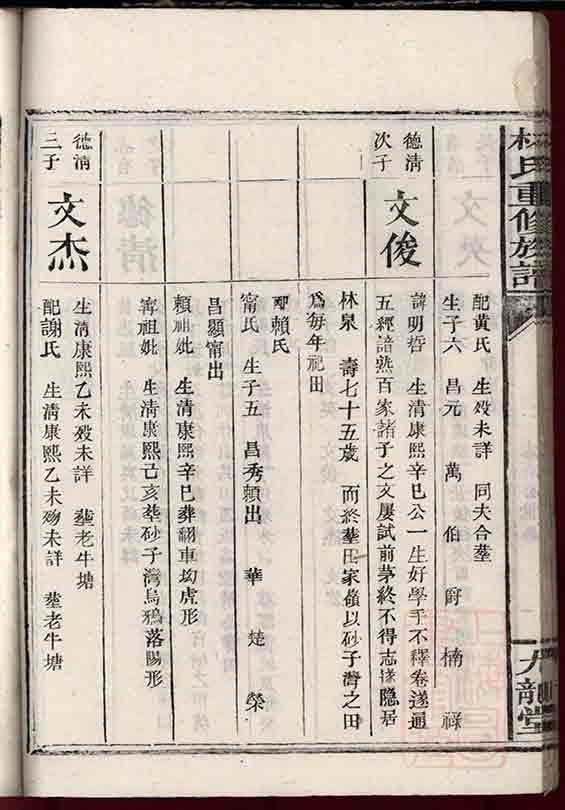 林氏重修族譜
九龍堂
配黃氏 生歿未詳 同夫合塟
生子六 昌元 萬 伯 爵 楠 祿
德清次子
文俊
諱明哲 生清康熙辛巳公一生好學手不釋卷遂通
五經諳熟百家諸子之文屢試前茅終不得志遂隱居
林泉 壽七十五歲 而終塟田家嶺以砂子灣之田
爲每年祀田
配賴氏
甯氏 生子五 昌秀賴出 華 楚 榮
昌顯甯出
賴祖妣 生清康熙辛巳葬翻車坳虎形
甯祖妣 生淸康熙己亥塟砂子灣烏鴉落陽形
德清三子
文杰
生清康熙乙未歿未詳 塟老牛塘
配謝氏 生清康熙乙未歿未詳 塟老牛塘